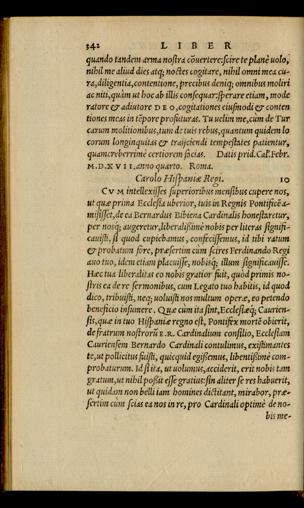 342 LIBER
quando tandem arma nostra cõuertere: scire te planè uolo,
nihil me aliud dies atq; noctes cogitare, nihil omni mea cu-
ra, diligentia, contentione, precibus deniq; omnibus moliri
ac niti, quàm ut hoc ab illis consequar: sperare etiam, mode
ratore & adiutore DEO, cogitationes eiusmodi & conten
tiones meas in tẽpore profuturas. Tu uelim me, cum de Tur
carum molitionibus, tum de tuis rebus, quantum quidem lo
corum longinquitas & trajiciendi tempestates patientur,
quam creberrimè certiorem facias. Datis prid. Cal. Febr.
M.D.XVII. anno quarto. Roma.
Carolo Hispaniæ Regi. 10
CVM intellexisses superioribus mensibus cupere nos,
ut quæ prima Ecclesia uberior, tuis in Regnis Pontificẽ a-
misisset, de ea Bernardus Bibiena Cardinalis honestaretur,
per nosq; augeretur, liberalißimè nobis per literas signifi-
cauisti, si quod cupiebamus, confecissemus, id tibi ratum
& probatum fore, præsertim cum scires Ferdinando Regi
auo tuo, idem etiam placuisse, nobisq; illum significauisse.
Hæc tua liberalitas eo nobis gratior fuit, quod primis no-
stris ea de re sermonibus, cum Legato tuo habitis, id quod
dico, tribuisti, neq; uoluisti nos multum operæ, eo petendo
beneficio insumere. Quæ cum ita sint, Ecclesiæq; Caurien-
sis, quæ in tuo Hispaniæ regno est, Pontifex mortẽ obierit,
de fratrum nostrorũ S.R. Cardinalium consilio, Ecclesiam
Cauriensem Bernardo Cardinali contulimus, existimantes
te, ut pollicitus fuisti, quicquid egißemus, libentißimè com-
probaturum. Id si ita, ut uolumus, acciderit, erit nobis tam
gratum, ut nihil poßit esse gratius: sin aliter se res habuerit,
ut quidam non belli iam homines dictitant, mirabor, præ-
sertim cum scias ea nos in re, pro Cardinali optimè de no-
bis me-